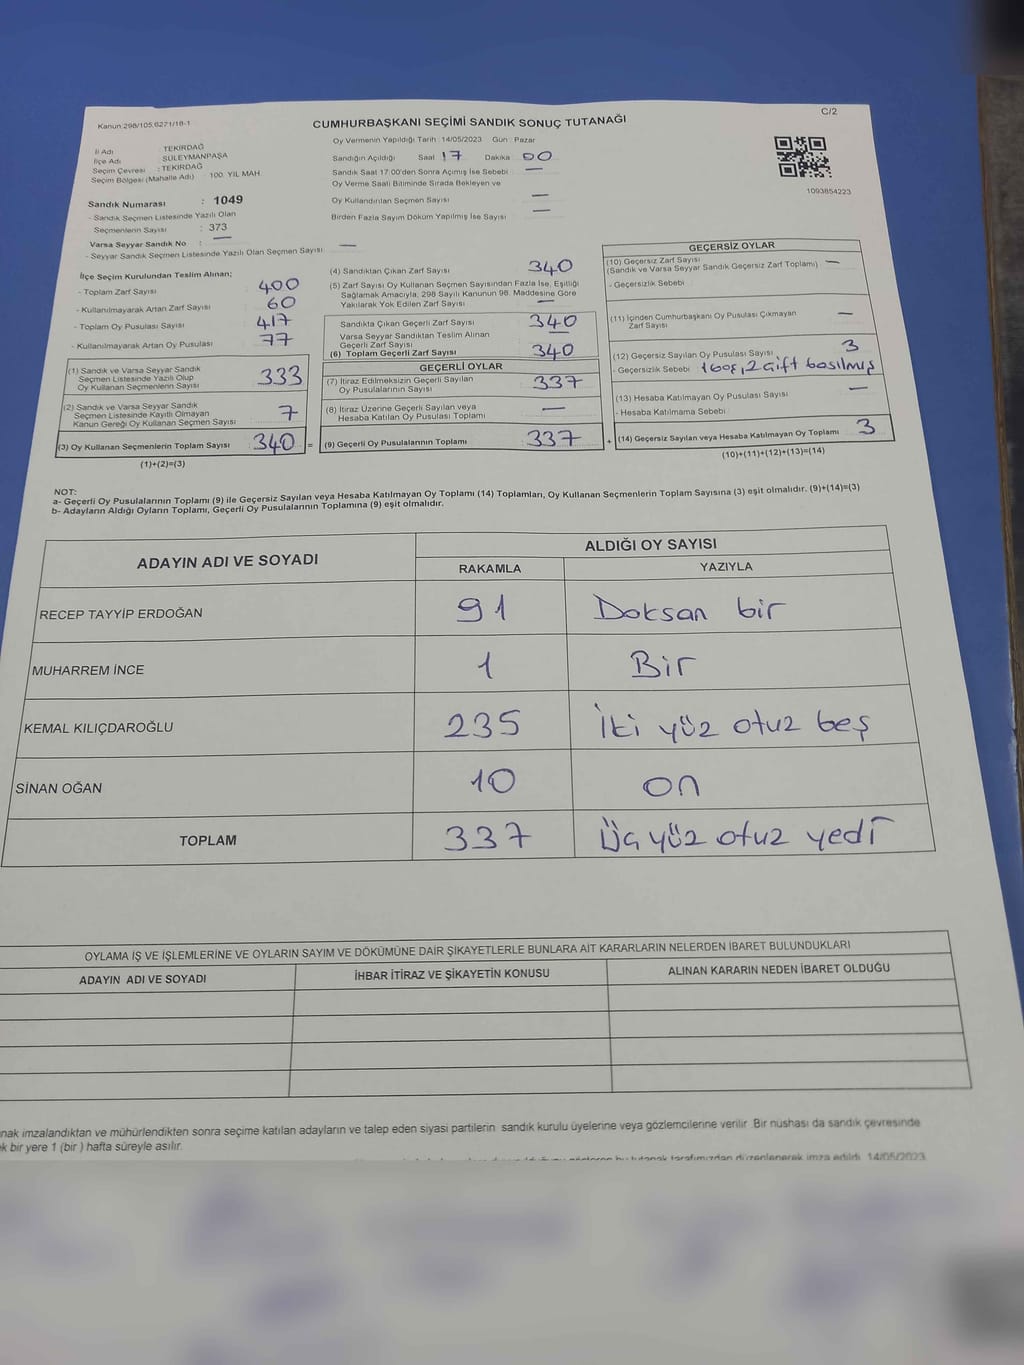 Kanun:298/105,6271/18-1
C/2
CUMHURBAŞKANI SEÇİMİ SANDIK SONUÇ TUTANAĞI
İl Adı : TEKİRDAĞ
İlçe Adı SÜLEYMANPAŞA
Seçim Çevresi : TEKİRDAĞ
Seçim Bölgesi (Mahalle Adı) : 100. YIL MAH.
Sandık Numarası : 1049
- Sandık Seçmen Listesinde Yazılı Olan
Seçmenlerin Sayısı : 373
Varsa Seyyar Sandık No : —
- Seyyar Sandık Seçmen Listesinde Yazılı Olan Seçmen Sayısı : —
Oy Vermenin Yapıldığı Tarih : 14/05/2023 Gün : Pazar
Sandığın Açıldığı Saat 17 Dakika 00
Sandık Saat 17:00'den Sonra Açımış İse Sebebi —
Oy Verme Saati Bitiminde Sırada Bekleyen ve
Oy Kullandırılan Seçmen Sayısı —
Birden Fazla Sayım Döküm Yapılmış İse Sayısı —
1093854223
İlçe Seçim Kurulundan Teslim Alınan;
- Toplam Zarf Sayısı 400
- Kullanılmayarak Artan Zarf Sayısı 60
- Toplam Oy Pusulası Sayısı 417
- Kullanılmayarak Artan Oy Pusulası 77
(1) Sandık ve Varsa Seyyar Sandık
Seçmen Listesinde Yazılı Olup
Oy Kullanan Seçmenlerin Sayısı 333
(2) Sandık ve Varsa Seyyar Sandık
Seçmen Listesinde Kayıtlı Olmayan
Kanun Gereği Oy Kullanan Seçmen Sayısı 7
(3) Oy Kullanan Seçmenlerin Toplam Sayısı 340 =
(1)+(2)=(3)
(4) Sandıktan Çıkan Zarf Sayısı 340
(5) Zarf Sayısı Oy Kullanan Seçmen Sayısından Fazla İse, Eşitliği
Sağlamak Amacıyla, 298 Sayılı Kanunun 98. Maddesine Göre
Yakılarak Yok Edilen Zarf Sayısı —
Sandıkta Çıkan Geçerli Zarf Sayısı 340
Varsa Seyyar Sandıktan Teslim Alınan
Geçerli Zarf Sayısı —
(6) Toplam Geçerli Zarf Sayısı 340
GEÇERLİ OYLAR
(7) İtiraz Edilmeksizin Geçerli Sayılan
Oy Pusulalarının Sayısı 337
(8) İtiraz Üzerine Geçerli Sayılan veya
Hesaba Katılan Oy Pusulası Toplamı —
(9) Geçerli Oy Pusulalarının Toplamı 337 +
GEÇERSİZ OYLAR
(10) Geçersiz Zarf Sayısı
(Sandık ve Varsa Seyyar Sandık Geçersiz Zarf Toplamı) —
- Geçersizlik Sebebi
(11) İçinden Cumhurbaşkanı Oy Pusulası Çıkmayan
Zarf Sayısı —
(12) Geçersiz Sayılan Oy Pusulası Sayısı 3
- Geçersizlik Sebebi 1 boş, 2 çift basılmış
(13) Hesaba Katılmayan Oy Pusulası Sayısı —
- Hesaba Katılmama Sebebi
(14) Geçersiz Sayılan veya Hesaba Katılmayan Oy Toplamı 3
(10)+(11)+(12)+(13)=(14)
NOT:
a- Geçerli Oy Pusulalarının Toplamı (9) ile Geçersiz Sayılan veya Hesaba Katılmayan Oy Toplamı (14) Toplamları, Oy Kullanan Seçmenlerin Toplam Sayısına (3) eşit olmalıdır. (9)+(14)=(3)
b- Adayların Aldığı Oyların Toplamı, Geçerli Oy Pusulalarının Toplamına (9) eşit olmalıdır.
ADAYIN ADI VE SOYADI
ALDIĞI OY SAYISI
RAKAMLA YAZIYLA
RECEP TAYYİP ERDOĞAN 91 Doksan bir
MUHARREM İNCE 1 Bir
KEMAL KILIÇDAROĞLU 235 İki yüz otuz beş
SİNAN OĞAN 10 on
TOPLAM 337 Üç yüz otuz yedi
OYLAMA İŞ VE İŞLEMLERİNE VE OYLARIN SAYIM VE DÖKÜMÜNE DAİR ŞİKAYETLERLE BUNLARA AİT KARARLARIN NELERDEN İBARET BULUNDUKLARI
ADAYIN ADI VE SOYADI İHBAR İTİRAZ VE ŞİKAYETİN KONUSU ALINAN KARARIN NEDEN İBARET OLDUĞU
nak imzalandıktan ve mühürlendikten sonra seçime katılan adayların ve talep eden siyasi partilerin sandık kurulu üyelerine veya gözlemcilerine verilir Bir nüshası da sandık çevresinde
k bir yere 1 (bir ) hafta süreyle asılır.
gösteren bu tutanak tarafımızdan düzenlenerek imza edildi. 14/05/2023